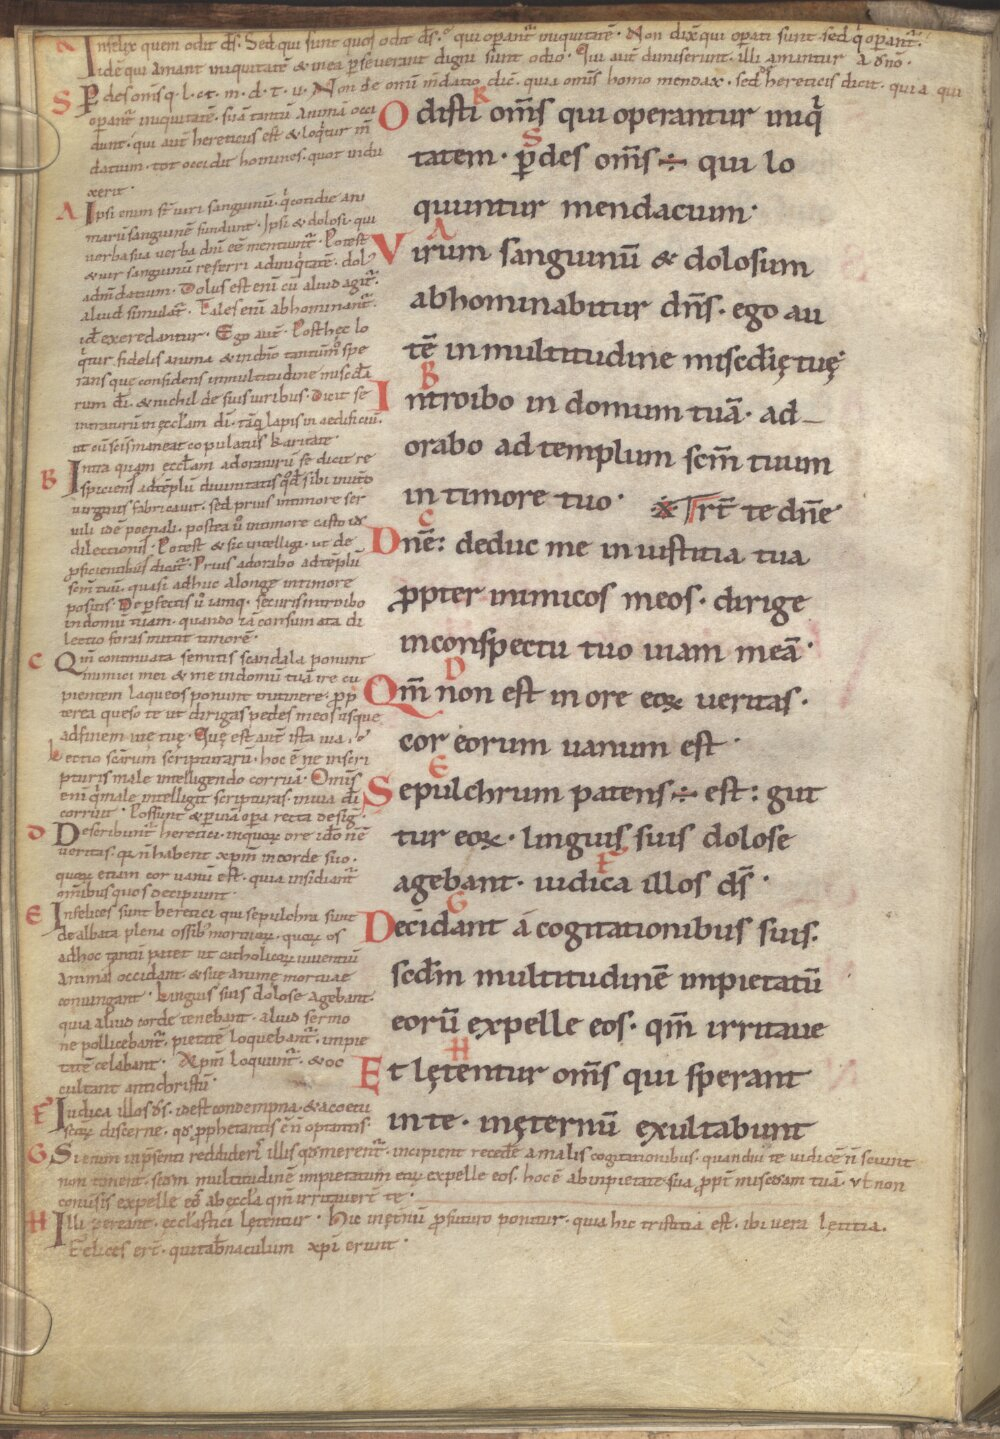 R Infelix quem odit ds̄. Sed qui sunt quos odit ds̄. qui operant̄ iniquitatē. Non dix̄ qui operati sunt. sed q̇ operant̄.
idē qui amant iniquitatē & in ea pseuerant digni sunt odio. Qui aut̄ dimiserunt. illi amantur a dn̄o.
S Pdes om̄s q. l. Non de om̄i qui om̄is homo mendax. sed hereticis dicit. quia qui
operant̄ iniquitatē. suā tantū animā occi
dunt. qui aut̄ hereticus est & loq̇tur m̄
dacium. tot occidit homines. quot indu
xerit.
A Ipsi enim st̄ uiri sanguinū. q̇ cotidie ani
marū sanguinē fundunt. Ipsi & dolosi. qui
uerba sua uerba dn̄i eē mentiunt̄. Potest
& uir sanguinū referri ad iniq̇tatē. dol᷒
ad m̄dacium. Dolus est eni cū aliud agit̄.
aliud simulat̄. Tales eni abhominant̄.
id exeredantur. Ego aut̄. Post hęc lo
q̇tur fidelis anima & in dn̄o tantūm̊ spe
rans que considens in multitudine misc̄dia
rum dī. & nichil de suis uiribus. Dicit se
intraturū in ęcclam dī. tāq̄ lapis in aedificiū.
ut cū scis maneat copulatus karitate.
B Intra quam ęcclam adoraturū se dicit re
spiciens ad tēplū diuinitatis qd̄ sibi in utero
uirginis fabricauit. sed prius in timore ser
uili idē poenali. postea ů in timore casto id
dilectionis. Potest & sic intelligi. ut de
pficientibus dicat̄. Prius adorabo ad tēplū
scm̄ tuū. quasi adhuc a longe in timore
positus. De pfectis ů iamq. securis introibo
in domū tuam. quando iā consumata di
lectio foras mittit timorē.
C Qm̄ continuata semitis scandala ponunt
inimici mei & me in domū tuā ire cu
pientem laqueos ponunt in itinere. pp
terea queso te ut dirigas pedes meos usque
ad finem uię tuę. Quę est aut̄ ista uia.
Lectio scarum scripturarū. hoc ē ne in scri
pturis male intelligendo corruā. Om̄is
eni q̇ male intelligit scripturas. in uia dī
corruit. Possunt & p uiā opa recta desiḡ.
D Describunt̄ heretici. in quor ore ido n̄ē
ueritas. q̇ n̄ habent xpm̄ in corde suo.
quor etiam cor uanū est. quia insidiant̄
om̄ibus quos decipiunt.
E Infelices sunt heretici qui sepulchra sunt
dealbata plena ossib᷒ mortuor. quor os
adhoc tantū patet ut catholicor iuuentū
animas occidant. & sue animę mortuae
coniungant. Linguis suis dolose agebant.
quia aliud corde tenebant. aliud sermo
ne pollicebant̄. pietatē loquebant̄. impie
tatē celabant. Xpm̄ loquunt̄. & oc
cultant antichristū.
F Iudica illos ds̄. id est condempna. & a coetu
scor discerne. qd̄ pphetantis ē n̄ optantis.
G Si enim in psenti reddider̄ illis qd̄ merent̄. incipient recedē a malis cogitationibus. quandiu te iudicē n̄ sciunt
non timent. scdm multitudinē impietatum eor expelle eos. hoc ē ab impietate sua. ppt̄ misc̄dam tuā. Vt non
conuisis expelle eos ab ęccla qm̄ irritauer̄ te.
H Illi pereant. ęccl'astici lętentur. Hic in ęternū p futuro ponitur. quia hic tristitia est. ibi uera lętitia.
Felices ert̄. qui tab̄naculum xpi erunt.
Odisti om̄s qui operantur iniq̇
tatem. pdes om̄s ÷ qui lo
quuntur mendacium.
Virum sanguinū & dolosum
abhominabitur dn̄s. ego au
tē in multitudine misc̄dię tuę
Introibo in domum tuā. ad–
orabo ad templum scm̄ tuum
in timore tuo. ※ Trt̄ te dn̄e
Dnē: deduc me in iustitia tua
ppter inimicos meos. dirige
in conspectu tuo uiam meā.
Qm̄ non est in ore eor ueritas.
cor eorum uanum est.
Sepulchrum patens ÷ est: gut
tur eor. linguis suis dolose
agebant. iudica illos ds̄.
Decidant á cogitationibus suis.
scdm̄ multitudinē impietatū
eorū expelle eos. qm̄ irritaue
Et lętentur om̄s qui sperant
in te. in ęternū exultabunt